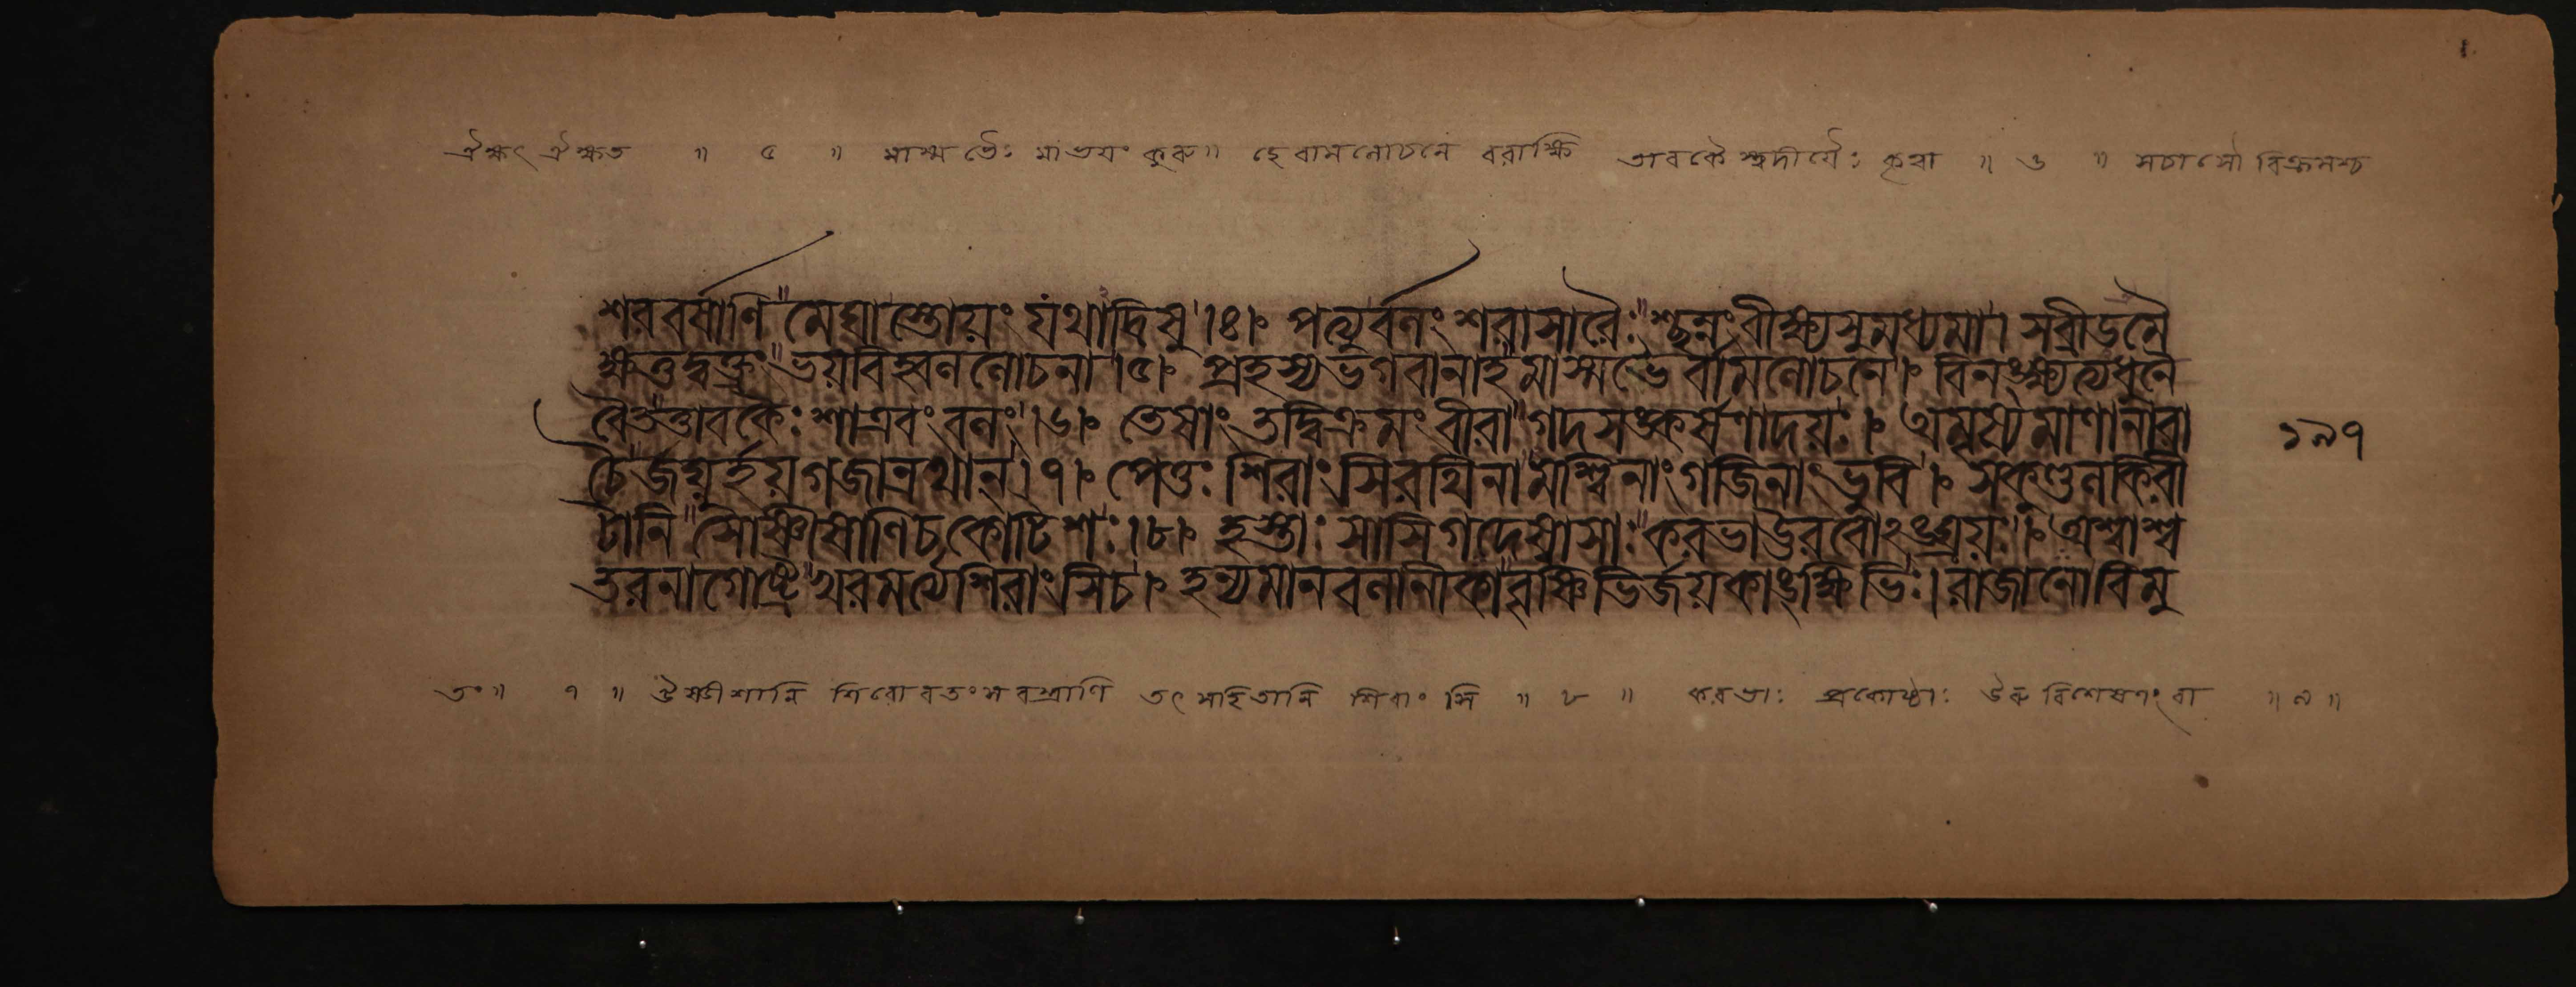 ঐক্ষৎ ঐক্ষত ॥ ৫ ॥ মাস্ম ভৈঃ মা ভয়ং কুরু ॥ হে বামলোচনে বরাক্ষি তাবকৈ স্ত্বদীয়ৈঃ কৃত্বা ॥ ৬ ॥ সচাসৌ বিক্রমশ্চ
শরবর্ষাণি মেঘাস্তোয়ং যথাদ্রিষু ।৪। পত্যুর্বলং শরাসারৈঃ শ্ছন্নং বীক্ষ্য সুমধ্যমা। সব্রীডমৈ
ক্ষত্তদ্বক্ত্রং ভয়বিহ্বললোচনা ।৫। প্রহস্য ভগবানাহ মাস্মভৈর্বামলোচনে । বিনঙ্ক্ষ্যত্যধুনৈ
বৈতত্তাবকৈঃ শাত্রবং বলং ।৬। তেষাং তদ্বিক্রমং বীরা গদসঙ্কর্ষণাদয়ঃ । অমৃষ্যমাণা নারা
চৈর্জঘ্নুর্হয়গজান্রথান্ ।৭। পেতুঃ শিরাংসি রথিনামশ্বিনাং গজিনাং ভুবি । সকুণ্ডলকিরী
টানি সোষ্ণীষাণি চ কোটিশঃ ।৮। হস্তাঃ সাসিগদেষ্বাসাঃ করভা ঊরবোঽঙ্ঘ্রয়ঃ । অশ্বাশ্ব
তরনাগোষ্ট্র খরমর্ত্যশিরাংসি চ । হন্যমানবলানীকা বৃষ্ণিভির্জয়কাঙ্ক্ষিভিঃ। রাজানো বিমু
১৯৭
তং ॥ ৭ ॥ ঔষ্ণীশানি শিরোবতংস বস্ত্রাণি তৎ সহিতানি শিরাংসি ॥ ৮ ॥ করভাঃ প্রকোষ্ঠাঃ ঊরু বিশেষণং বা ॥ ৯ ॥